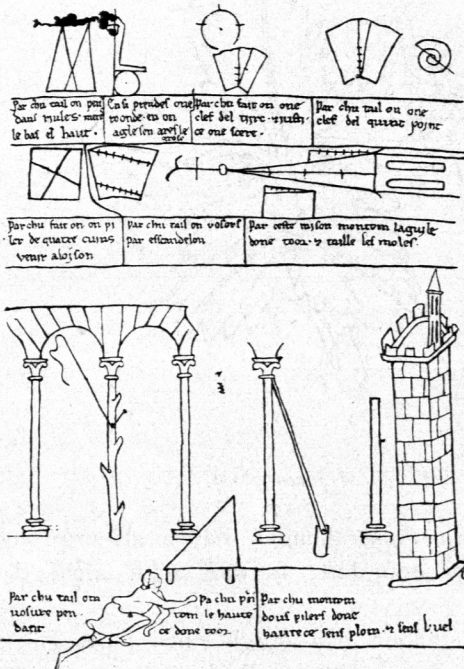 Par chu tail on pen
dans riules · mete
le bas el haut ·
Ensi prendes one
roonde en on
agle sen ares le
grosse
Par chu fait on one
clef del tirc · ⁊ iusti
ce one scere ·
Par chu tail on one
clef del quint point
Par chu fait on on pi
ler de quatre cuins
venir a loison
Par chu tail on vosors
par esscandelon
Par ceste raison montom laguile
done toor · ⁊ taille les moles ·
Par chu tail om
vosure pen
dant
Pa chu p̄n
tom le haute
ce done toor ·
Par chu montom
dous pilers done
hautece sens plom · ⁊ sens l·vel